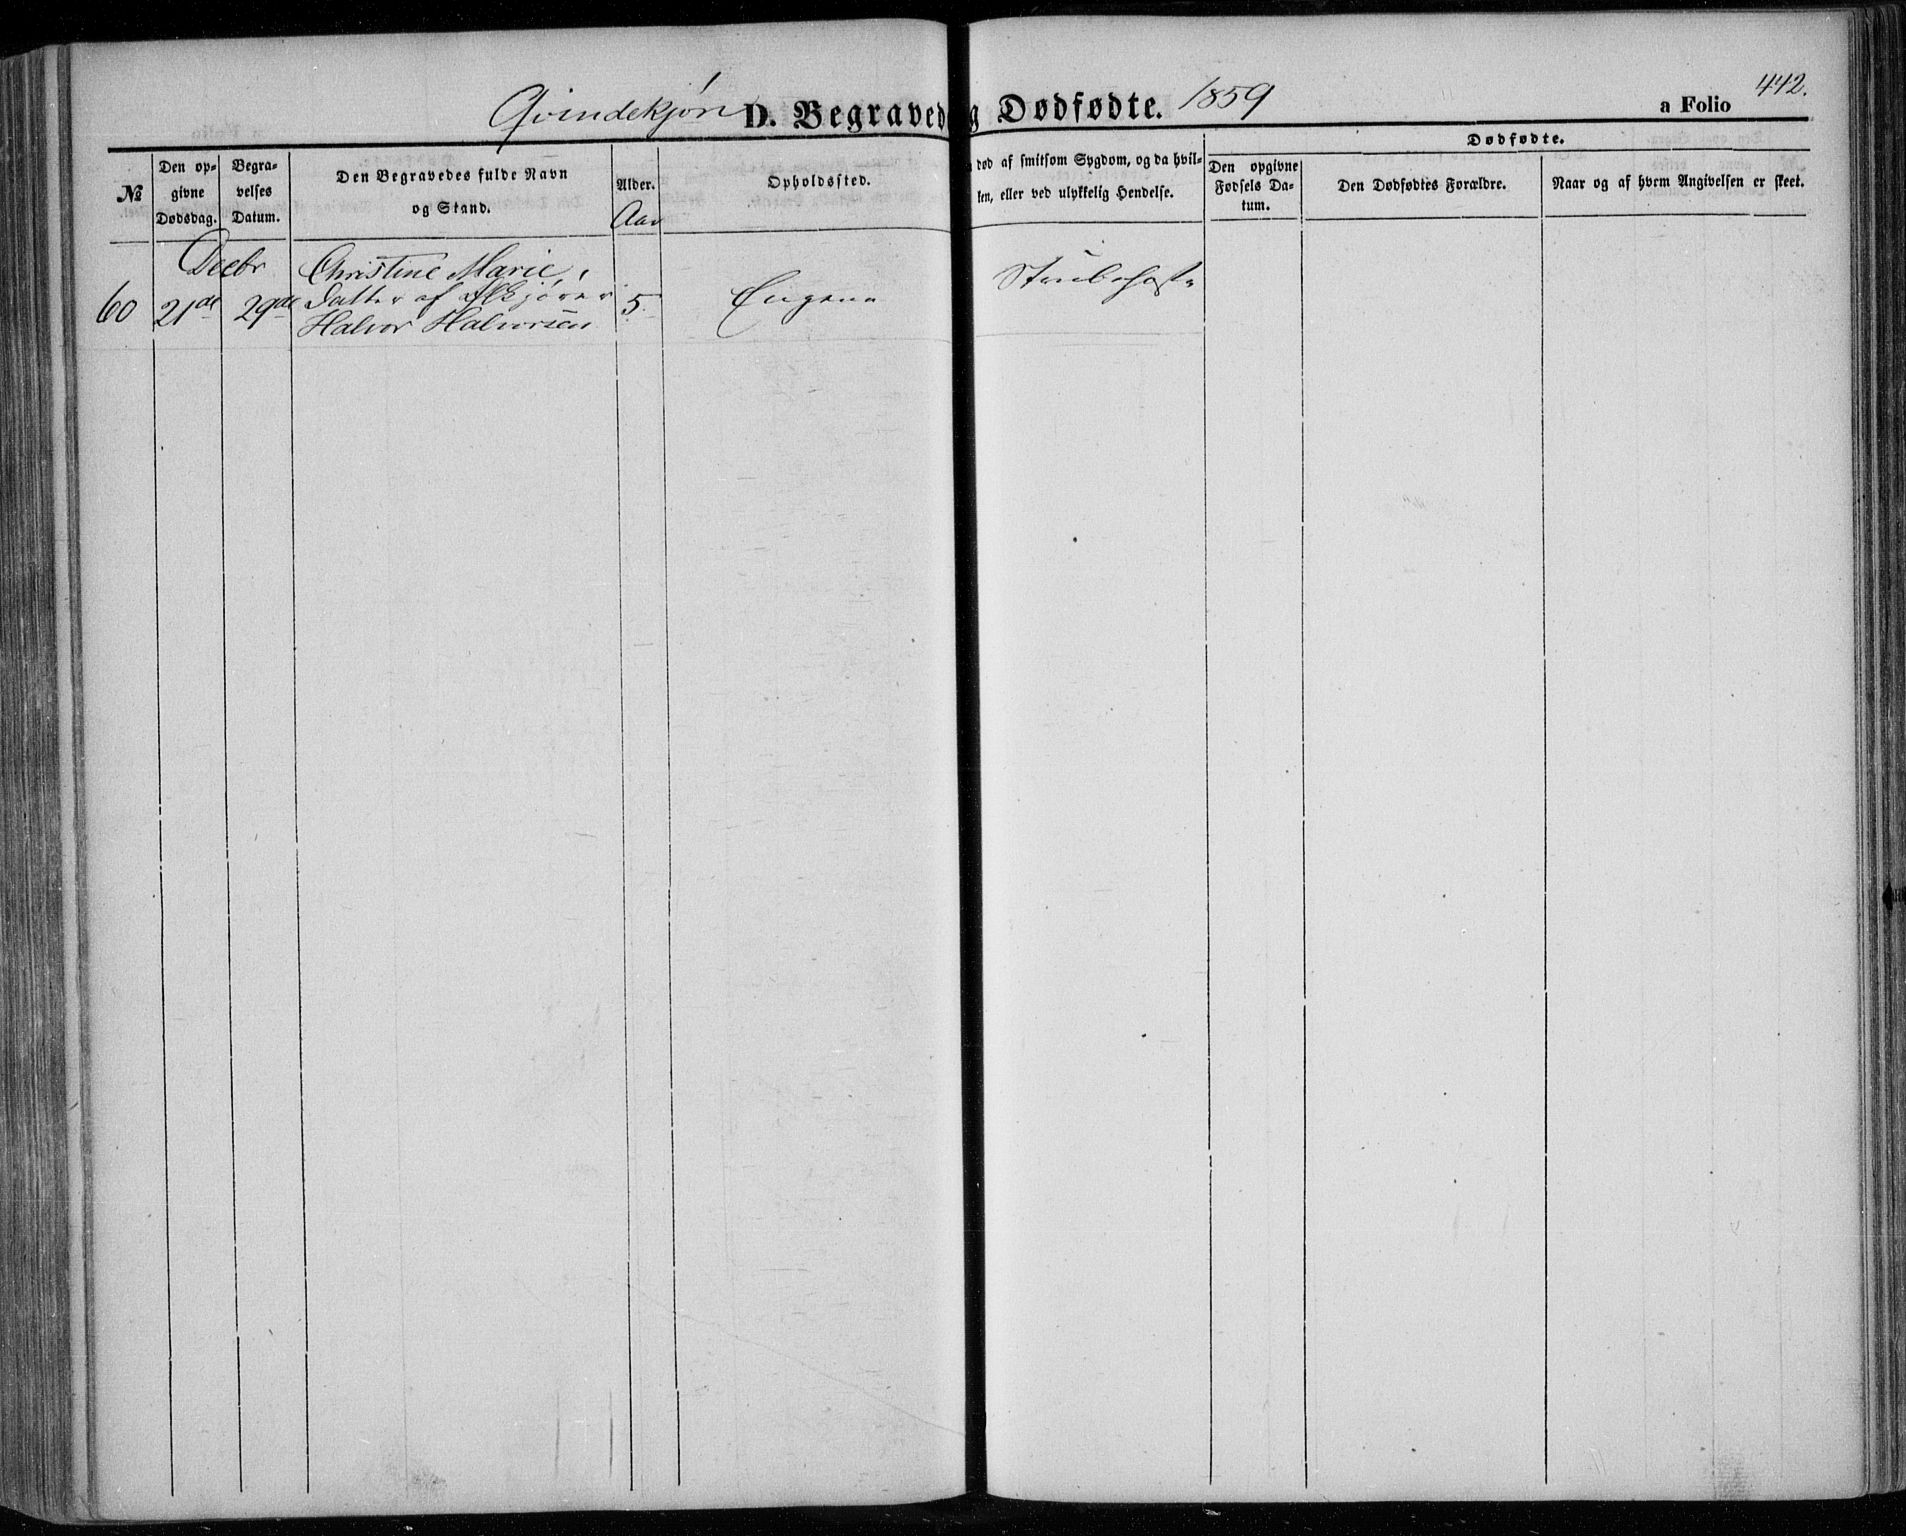 Qvindekjøn D. Begraved g Dødfødte. 1859 a Folio 442.
Dødfødte.
№
Den op-
givne
Dødsdag.
Begra-
velses
Datum.
Den Begravedes fulde Navn
og Stand.
Alder.
Aar
Opholdssted.
død af smitsom Sygdom, og da hvil-
ken, eller ved ulykkelig Hendelse.
Den opgivne
Fødsels Da-
tum.
Den Dødfødtes Forældre.
Naar og af hvem Angivelsen er skeet.
Decbr
60 21de 29de
Christine Marie,
Datter af
Halvor Halvorsen
5
Engene
Strubehoste